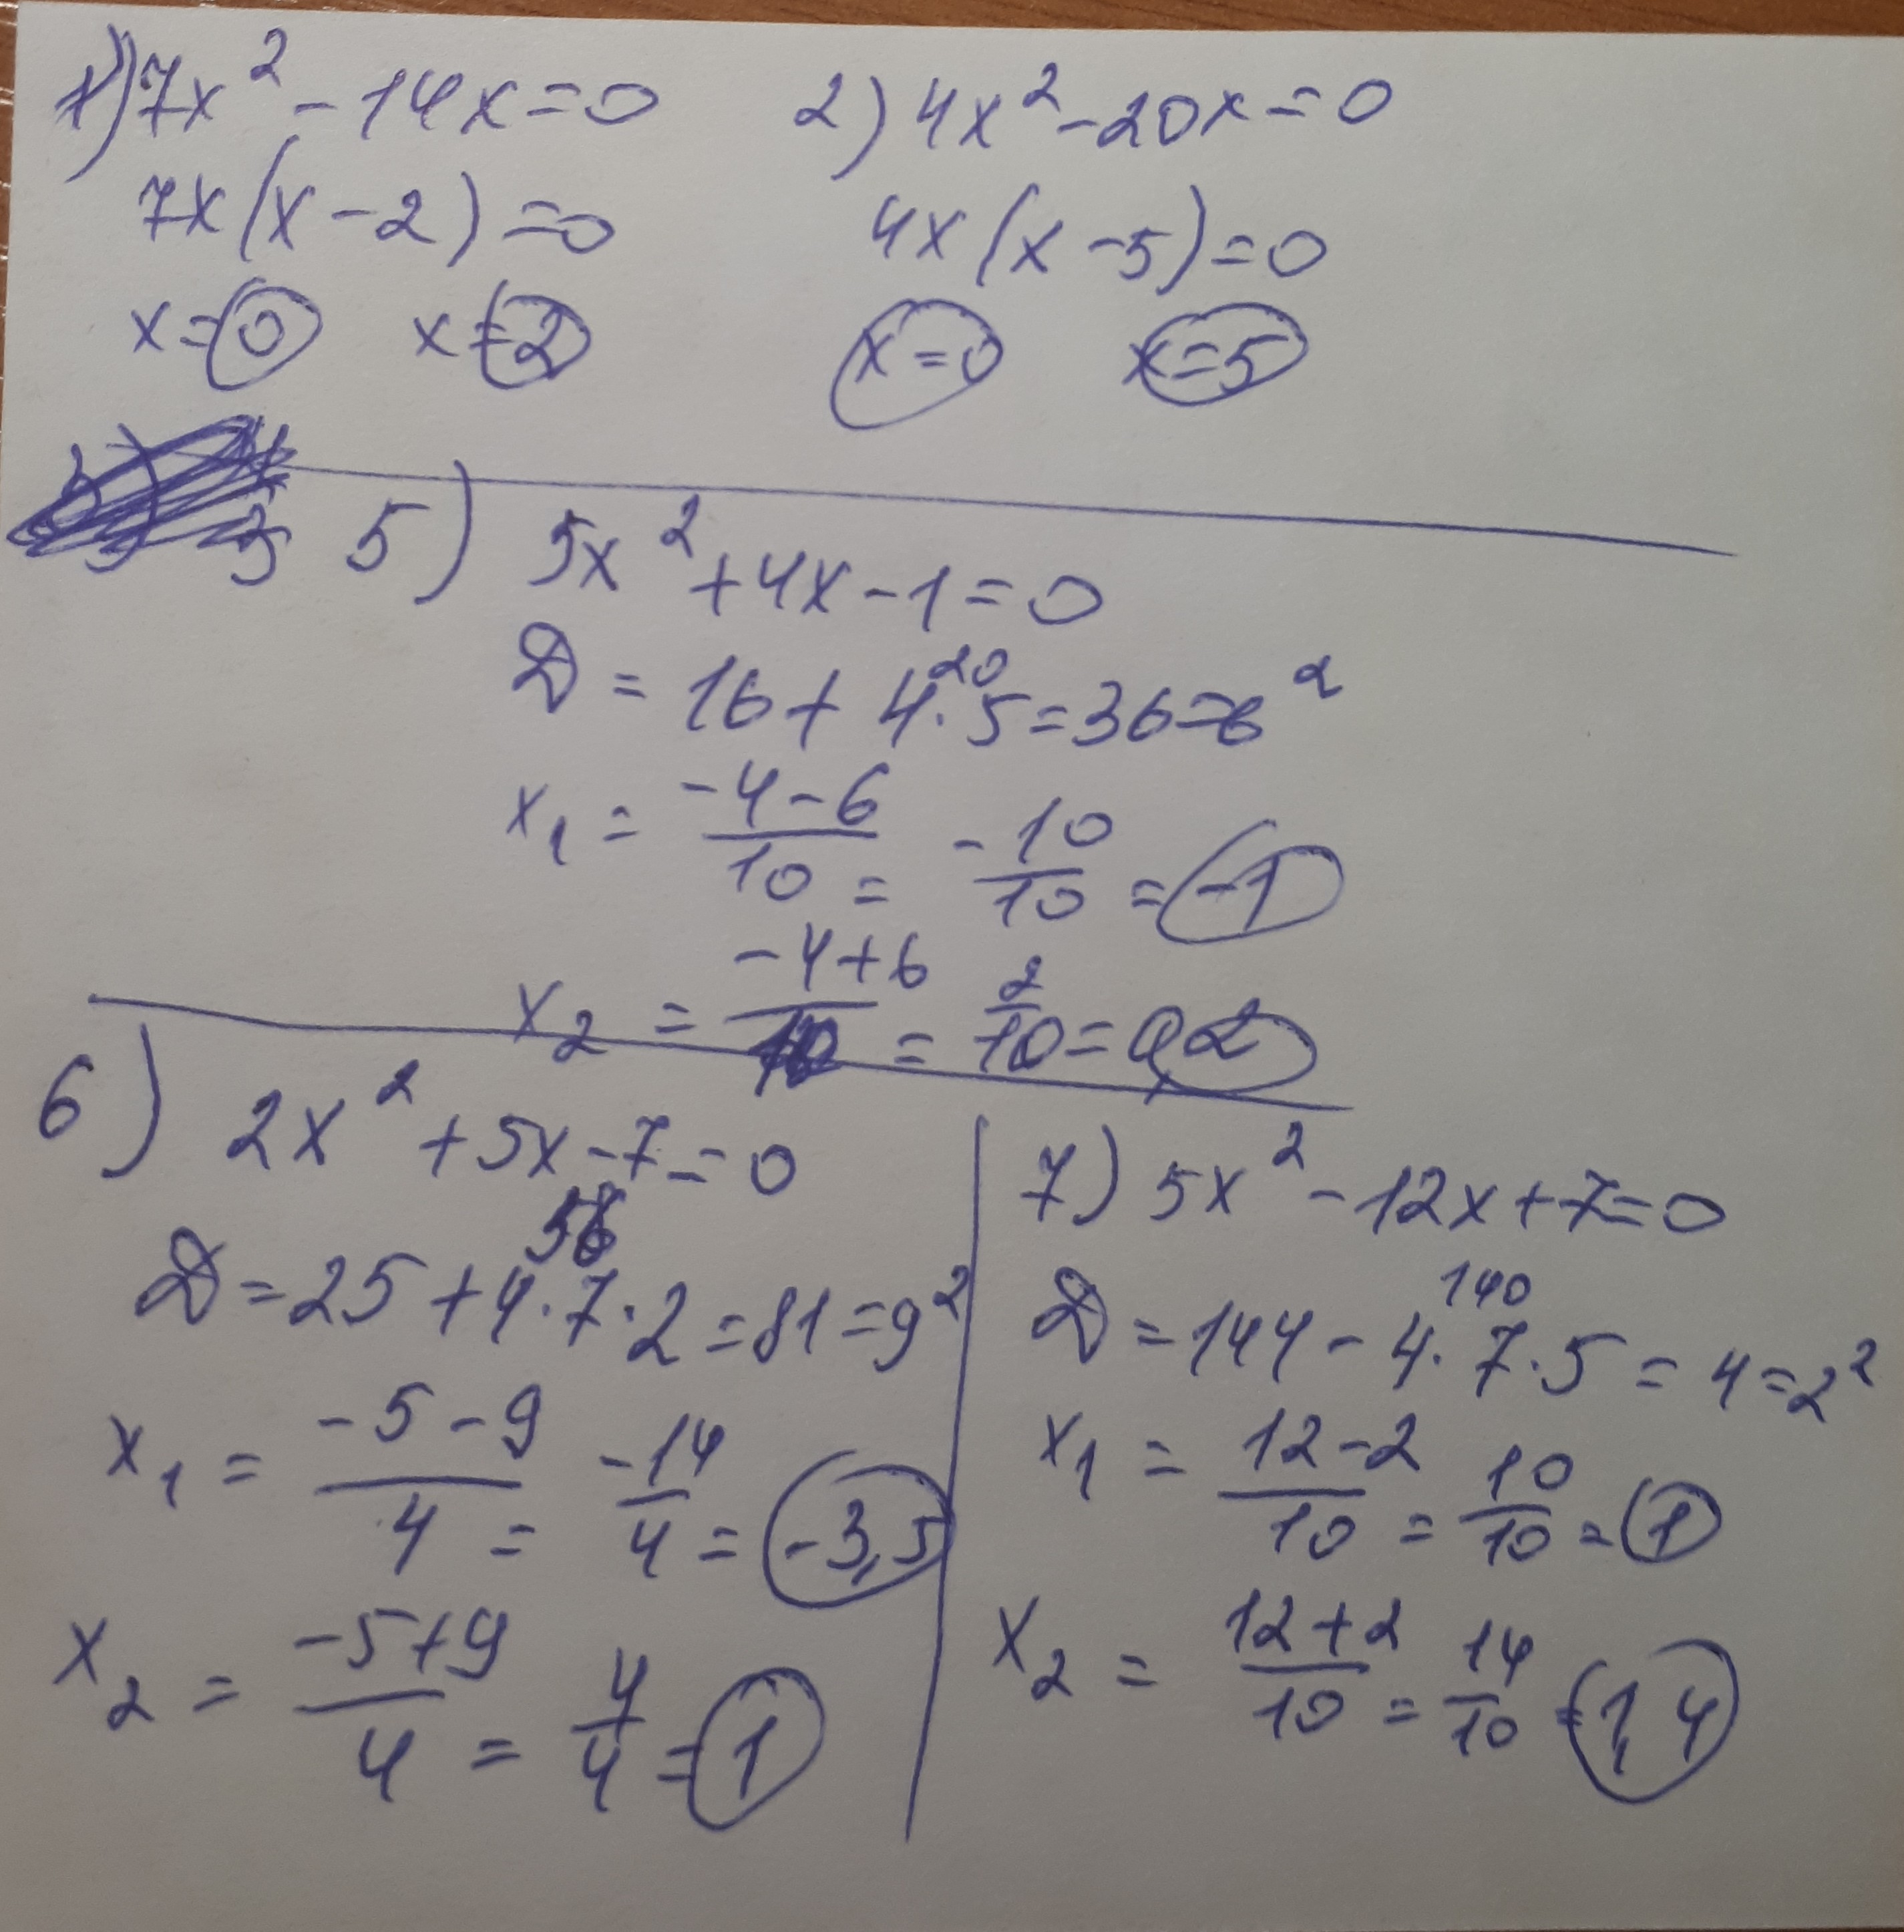 1) 7x² - 14x = 0
7x(x - 2) = 0
x = 0 x = 2
2) 4x² - 20x = 0
4x(x - 5) = 0
x = 0 x = 5
5) 5x² + 4x - 1 = 0
20
D = 16 + 4·5 = 36 = 6²
x₁ = (-4-6)/10 = -10/10 = -1
x₂ = (-4+6)/10 = 2/10 = 0,2
6) 2x² + 5x - 7 = 0
56
D = 25 + 4·7·2 = 81 = 9²
x₁ = (-5-9)/4 = -14/4 = -3,5
x₂ = (-5+9)/4 = 4/4 = 1
7) 5x² - 12x + 7 = 0
140
D = 144 - 4·7·5 = 4 = 2²
x₁ = (12-2)/10 = 10/10 = 1
x₂ = (12+2)/10 = 14/10 = 1,4